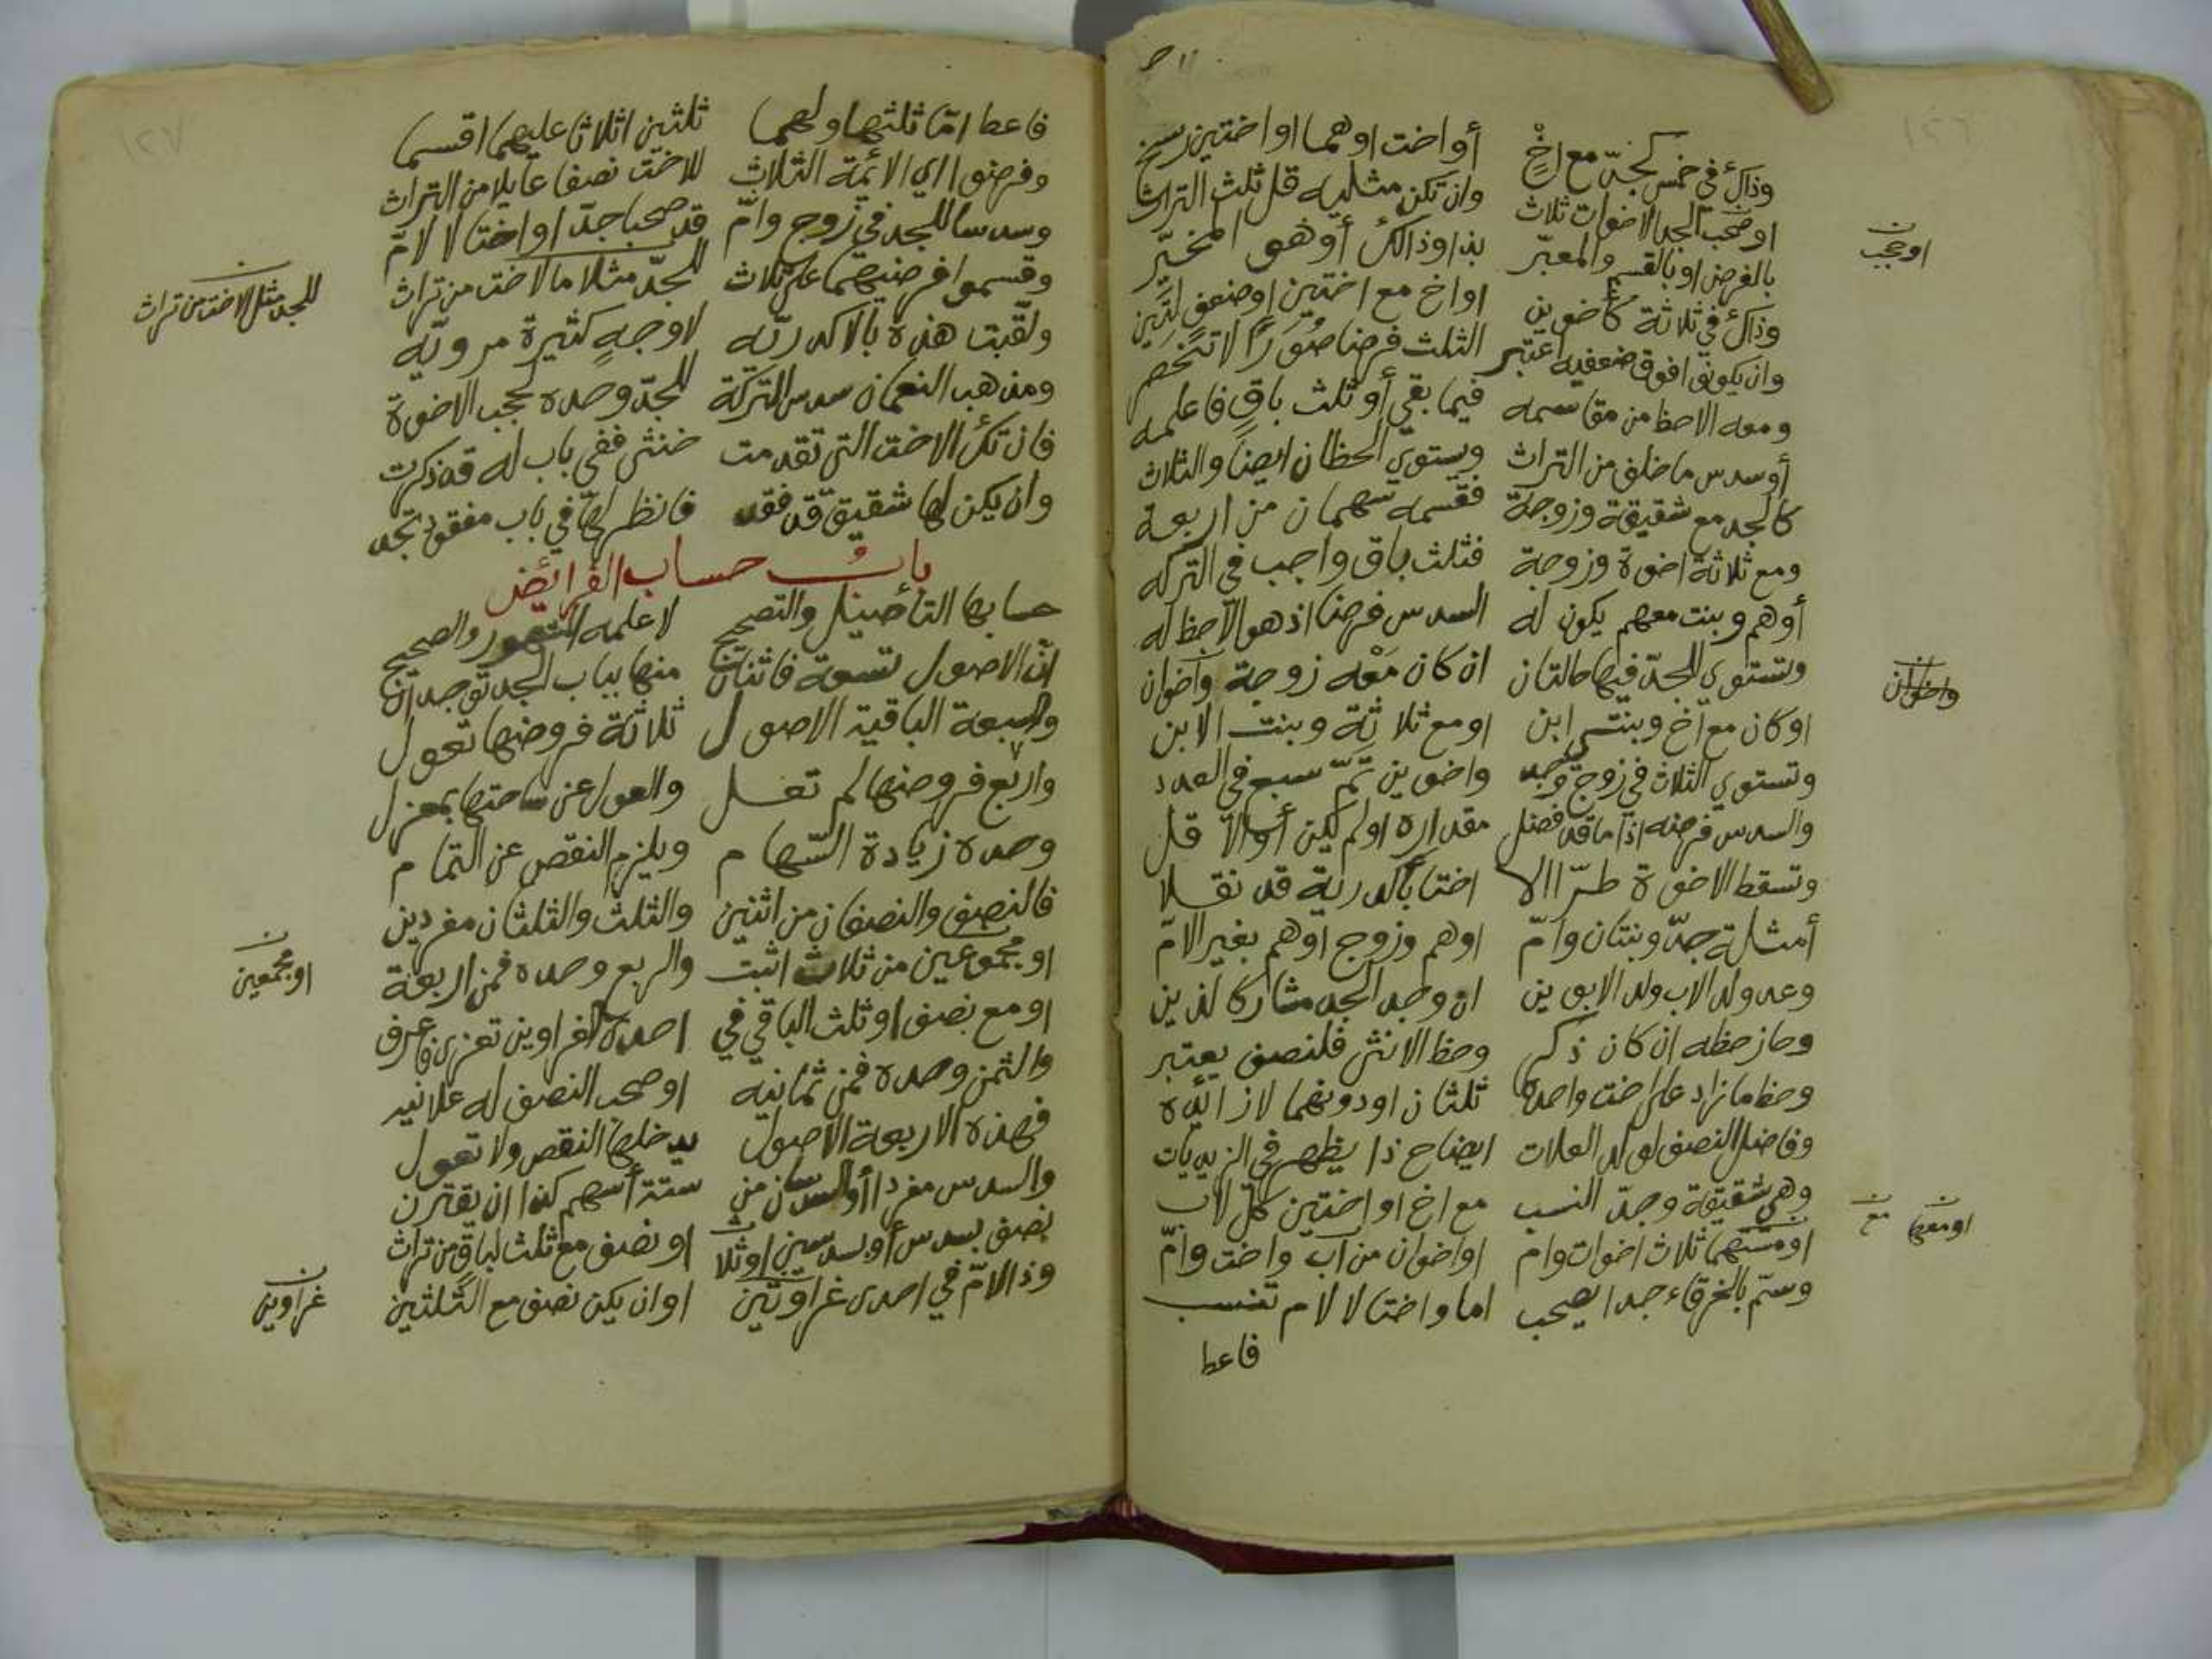 وذاك في خمس كجد مع اخ أو اخت او هما او اختين رسخ
او صحب الجد الاخوات ثلاث وان تكن مثليه قل ثلث التراث
بالفرض او بالقسم والمعبر بذا وذالك أو هو المخير
وذاك في ثلاثة كأخوين او اخ مع اختين او ضعف لتين
وان يكونوا فوق ضعفيه اعتبر الثلث فرضا صورا لا تنحصر
ومعه الاحظ من مقاسمه فيما بقي أو ثلث باق فاعلمه
أو سدس ما خلف من التراث ويستوي الحظان ايضا والثلاث
كالجد مع شقيقة وزوجة فقسمه سهمان من اربعة
ومع ثلاثة اخوة وزوجة فثلث باق واجب في التركه
أو هم وبنت معهم يكون له السدس فرضا اذ هو الاحظ له
وتستوي للجد فيها حالتان ان كان معه زوجة واخوان
او كان مع اخ وبنتي ابن او مع ثلاثة وبنت الابن
وتستوي الثلاث في زوج وجد واخوين تم سبع في العدد
والسدس فرضه اذا ما قد فضل مقداره او لم يكن أو الاقل
وتسقط الاخوة طرا الا اختا بأكدرية قد نقلا
أمثلة جد وبنتان وام او هم وزوج او هم بغير الام
وعد ولد الاب ولد الابوين ان وجد الجد مشاركا لذين
وحاز حظه ان كان ذكر وحظ الانثى فلنصف يعتبر
وحظ ما زاد على اخت واحدة ثلثان او دونهما لا زائده
وفاضل النصف لولد العلات ايضاح ذا يظهر في الزيديات
وهي شقيقة وجد النسب مع اخ او اختين كل لاب
ثلاث اخوات وام او اخوان من اب واخت وام
وسم بالخرقاء جدا يصحب اما واختا لا لام تنسب
فاعط
او حجب
واخوان
او معها
مع
فاعط اما ثلثها ولهما ثلثين اثلاثا عليهما اقسما
وفرضوا اي الائمة الثلاث للاخت نصفا عايلا من التراث
وسدسا للجد في زوج وام قد صحبا جدا واختا لا لام
وقسموا فرضيهما على ثلاث للجد مثلا ما لاخت من تراث
ولقبت هذه بالاكدريه لاوجه كثيرة مرويه
ومذهب النعمان سدس التركة للجد وحده بحجب الاخوة
فان تك الاخت التي تقدمت خنثى ففي باب له قد ذكرت
وان يكن لها شقيق قد فقد فانظر لها في باب مفقود تجد
باب حساب الفرائض
حسابها التأصيل والتصحيح لا علمه المشهور والصحيح
ان الاصول تسعة فاثنان منها بباب الجد توجدان
والسبعة الباقية الاصول ثلاثة فروضها تعول
واربع فروضها لم تعل والعول عن ساحتها بمعزل
وحده زيادة السهام ويلزم النقص عن التمام
فالنصف والنصفان من اثنين والثلث والثلثان مفردين
او مجموعين من ثلاث اثبت والربع وحده فمن اربعة
او مع نصف او ثلث الباقي في احدى الغراوين تعزى فاعرف
والثمن وحده فمن ثمانيه او صحب النصف له علانيه
فهذه الاربعة الاصول يدخلها النقص ولا تعول
والسدس مفردا أو السدسان من ستة أسهم كذا ان يقترن
نصف بسدس أو بسدسين او ثلاث او نصف مع ثلث لباق من تراث
وذا لام في احدى غراوتين او ان يكن نصف مع الثلثين
للجد مثل الاخت من تراث
او مجمعين
غراوين